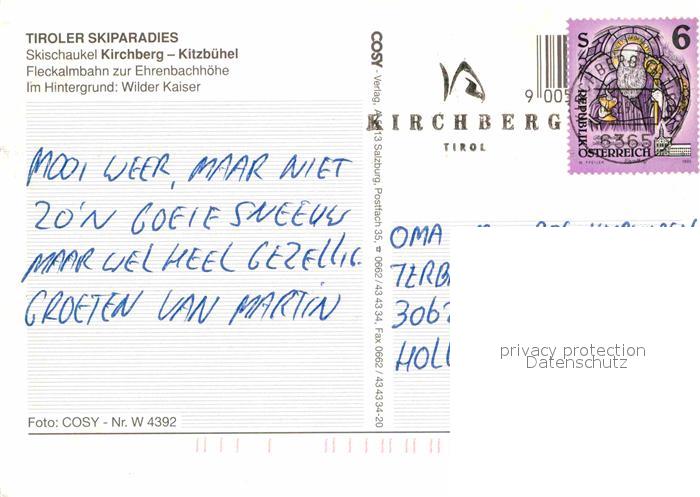 TIROLER SKIPARADIES
Skischaukel Kirchberg – Kitzbühel
Fleckalmbahn zur Ehrenbachhöhe
Im Hintergrund: Wilder Kaiser
MOOI WEER, MAAR NIET
ZO'N GOEIE SNEEUW
MAAR WEL HEEL GEZELLIG.
GROETEN VAN MARTIN
Foto: COSY - Nr. W 4392
COSY - Verlag, 13 Salzburg, Postfach 35, ☎ 0662 / 43 43 34, Fax 0662 / 43 43 34-20
9 005
KIRCHBERG
TIROL
S 6
REPUBLIK
ÖSTERREICH
6365
OMA
TERB
306
HOLL
privacy protection
Datenschutz